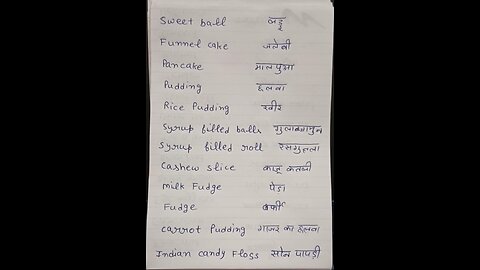 Sweet ball लड्डू
Funnel cake जलेबी
Pancake मालपुआ
Pudding हलवा
Rice Pudding खीर
Syrup filled balls गुलाबजामुन
Syrup filled roll रसगुल्ला
Cashew slice काजू कतली
Milk Fudge पेडा
Fudge बर्फी
Carrot Pudding गाजर का हलवा
Indian candy Floss सोन पापड़ी